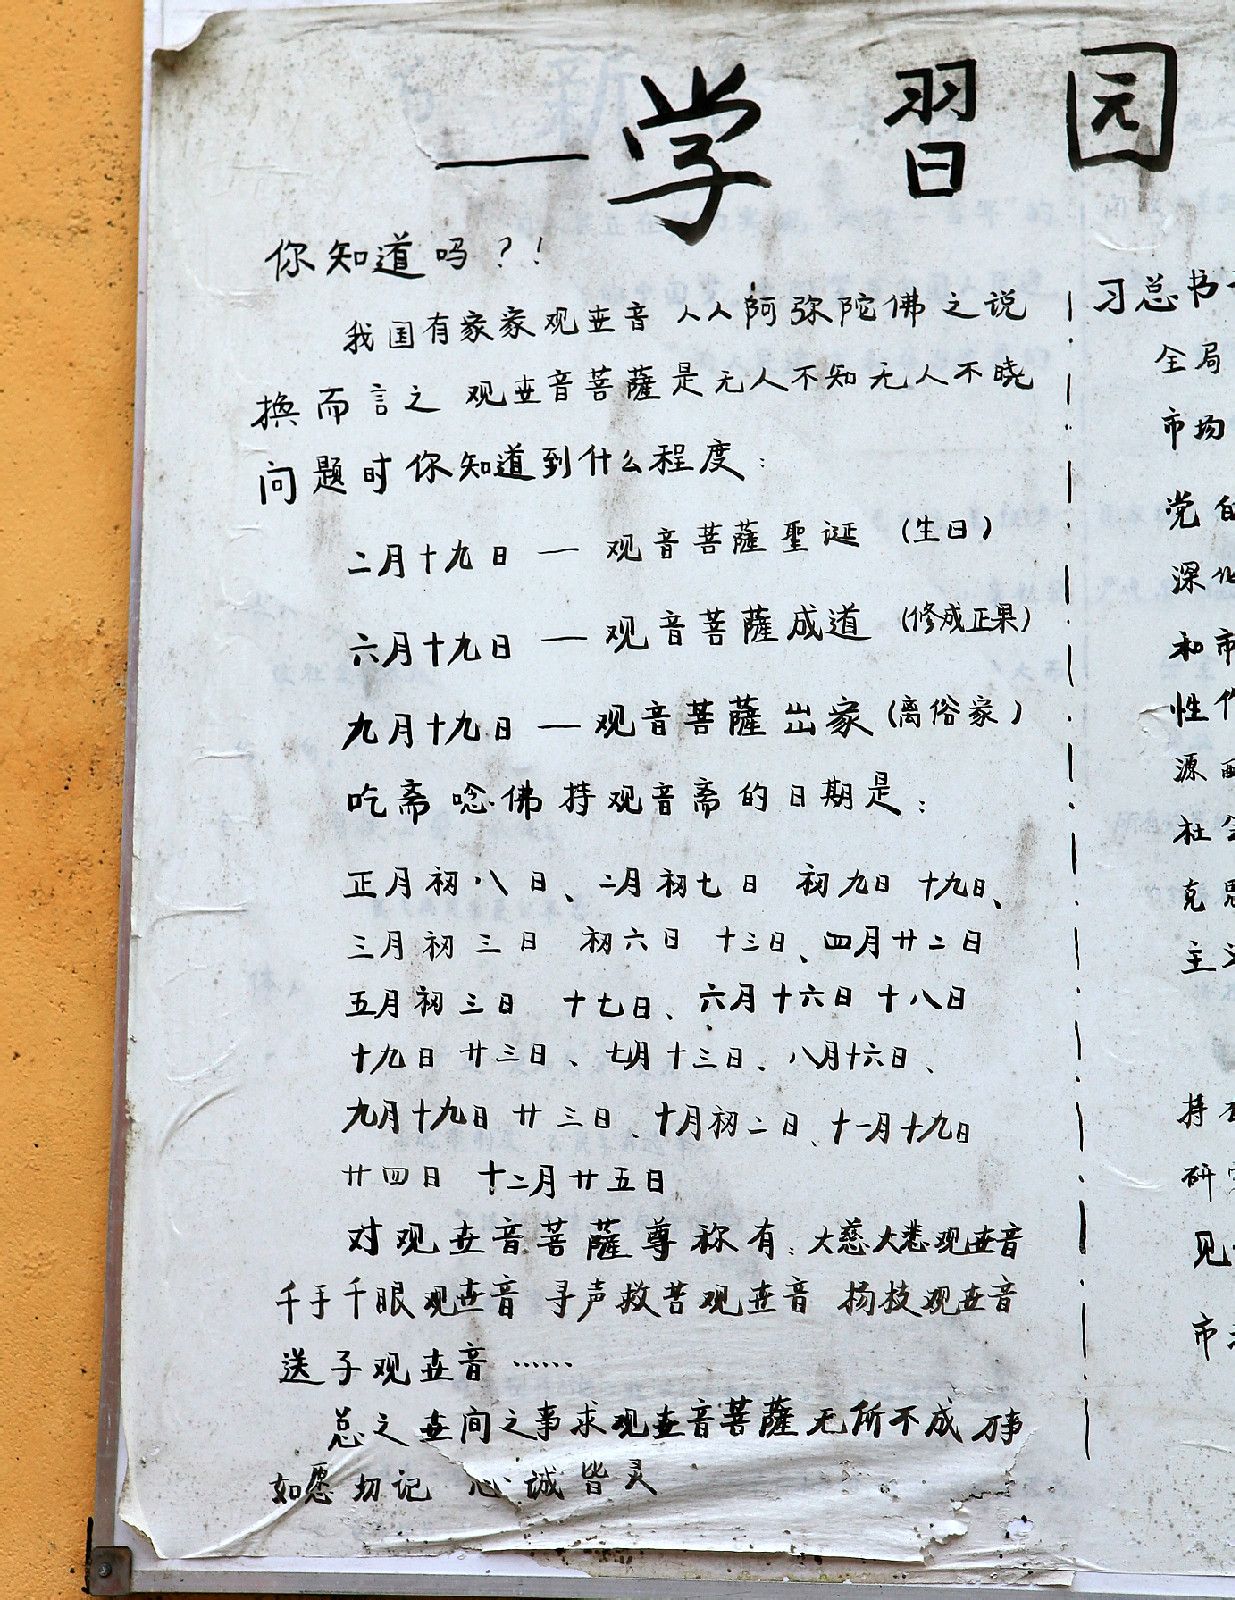 —学习园
你知道吗?!
我国有家家观世音 人人阿弥陀佛之说
换而言之 观世音菩薩是无人不知无人不晓
问题时你知道到什么程度:
二月十九日 — 观音菩薩聖诞 (生日)
六月十九日 — 观音菩薩成道 (修成正果)
九月十九日 — 观音菩薩出家 (离俗家)
吃斋唸佛持观音斋的日期是:
正月初八日、二月初七日 初九日 十九日、
三月初三日 初六日 十三日、四月廿二日
五月初三日 十七日、六月十六日 十八日
十九日 廿三日、七月十三日、八月十六日、
九月十九日 廿三日、十月初二日、十一月十九日
廿四日 十二月廿五日
对观世音菩薩尊称有:大慈大悲观世音
千手千眼观世音 寻声救苦观世音 扬枝观世音
送子观世音……
总之世间之事求观世音菩薩无所不成 万事
如愿 切记 心诚皆灵
习总书
全局
市场
党的
深化
和市
性作
源
社会
克思
主义
持
研
见
市